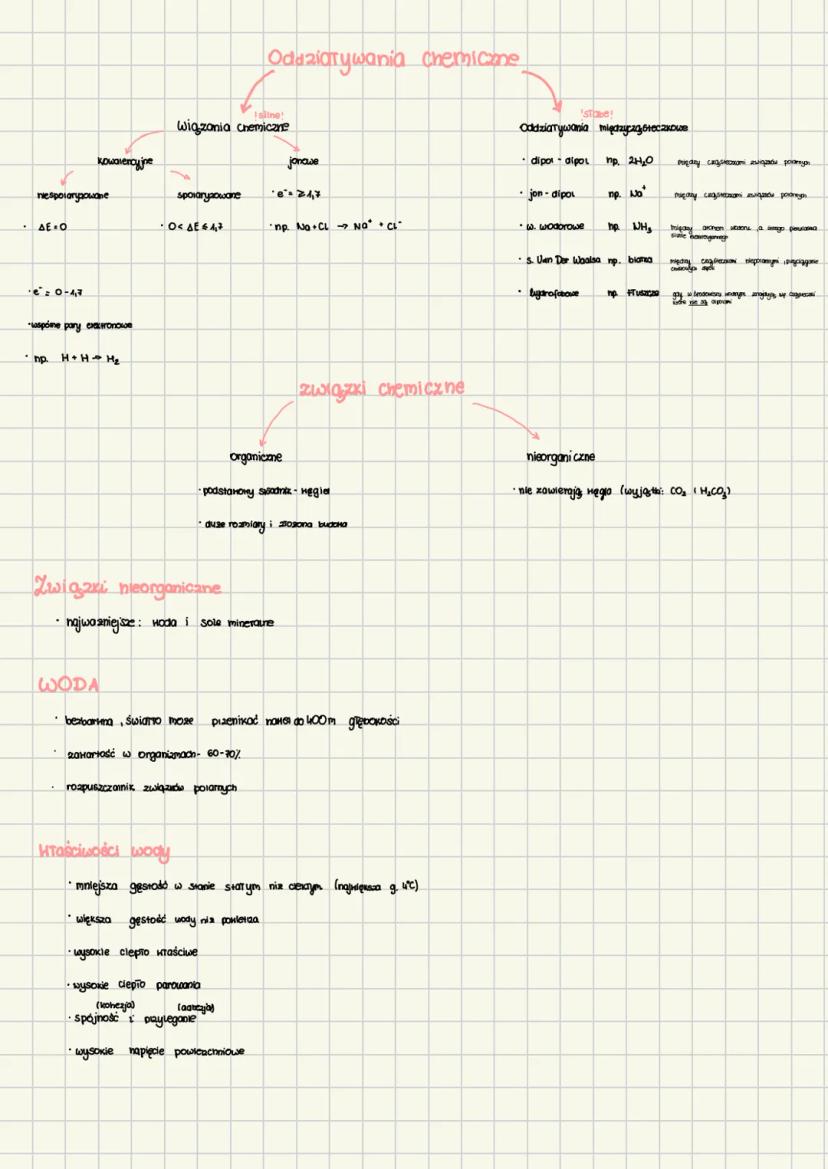 Oddziaływania chemiczne
!silne!
!słabe!
Wiązania chemiczne
Oddziaływania międzycząsteczkowe
kowalencyjne
jonowe
· dipol - dipol np. 2H₂O między cząsteczkami związków polarnych
niespolaryzowane
spolaryzowane
· e⁻ = ≥ 1,7
· jon - dipol np. Na⁺ między cząsteczkami związków polarnych
· ΔE = 0
· 0 < ΔE ≤ 1,7
· np. Na + Cl → Na⁺ + Cl⁻
· w. wodorowe np. NH₃ między atomem wodoru, a innego pierwiastka
silnie
· s. Van Der Waalsa np. białka między cząsteczkami niepolarnymi
· e⁻ = 0 - 1,7
· hydrofobowe np. tłuszcze gdy w środowisku wodnym znajdują się cząsteczki
które nie są dipolami
· wspólne pary elektronowe
· np. H + H → H₂
związki chemiczne
organiczne
nieorganiczne
· podstawowy składnik - węgiel
· nie zawierają węgla (wyjątki: CO₂ i H₂CO₃)
· duże rozmiary i złożona budowa
Związki nieorganiczne
· najważniejsze: woda i sole mineralne
WODA
· bezbarwna, światło może przenikać nawet do 400m głębokości
· zawartość w organizmach - 60-70%
· rozpuszczalnik związków polarnych
Właściwości wody
· mniejsza gęstość w stanie stałym niż ciekłym (największa g. 4°C)
· większa gęstość wody niż powietrza
· wysokie ciepło właściwe
· wysokie ciepło parowania
(kohezja) (adhezja)
· spójność i przyleganie
· wysokie napięcie powierzchniowe